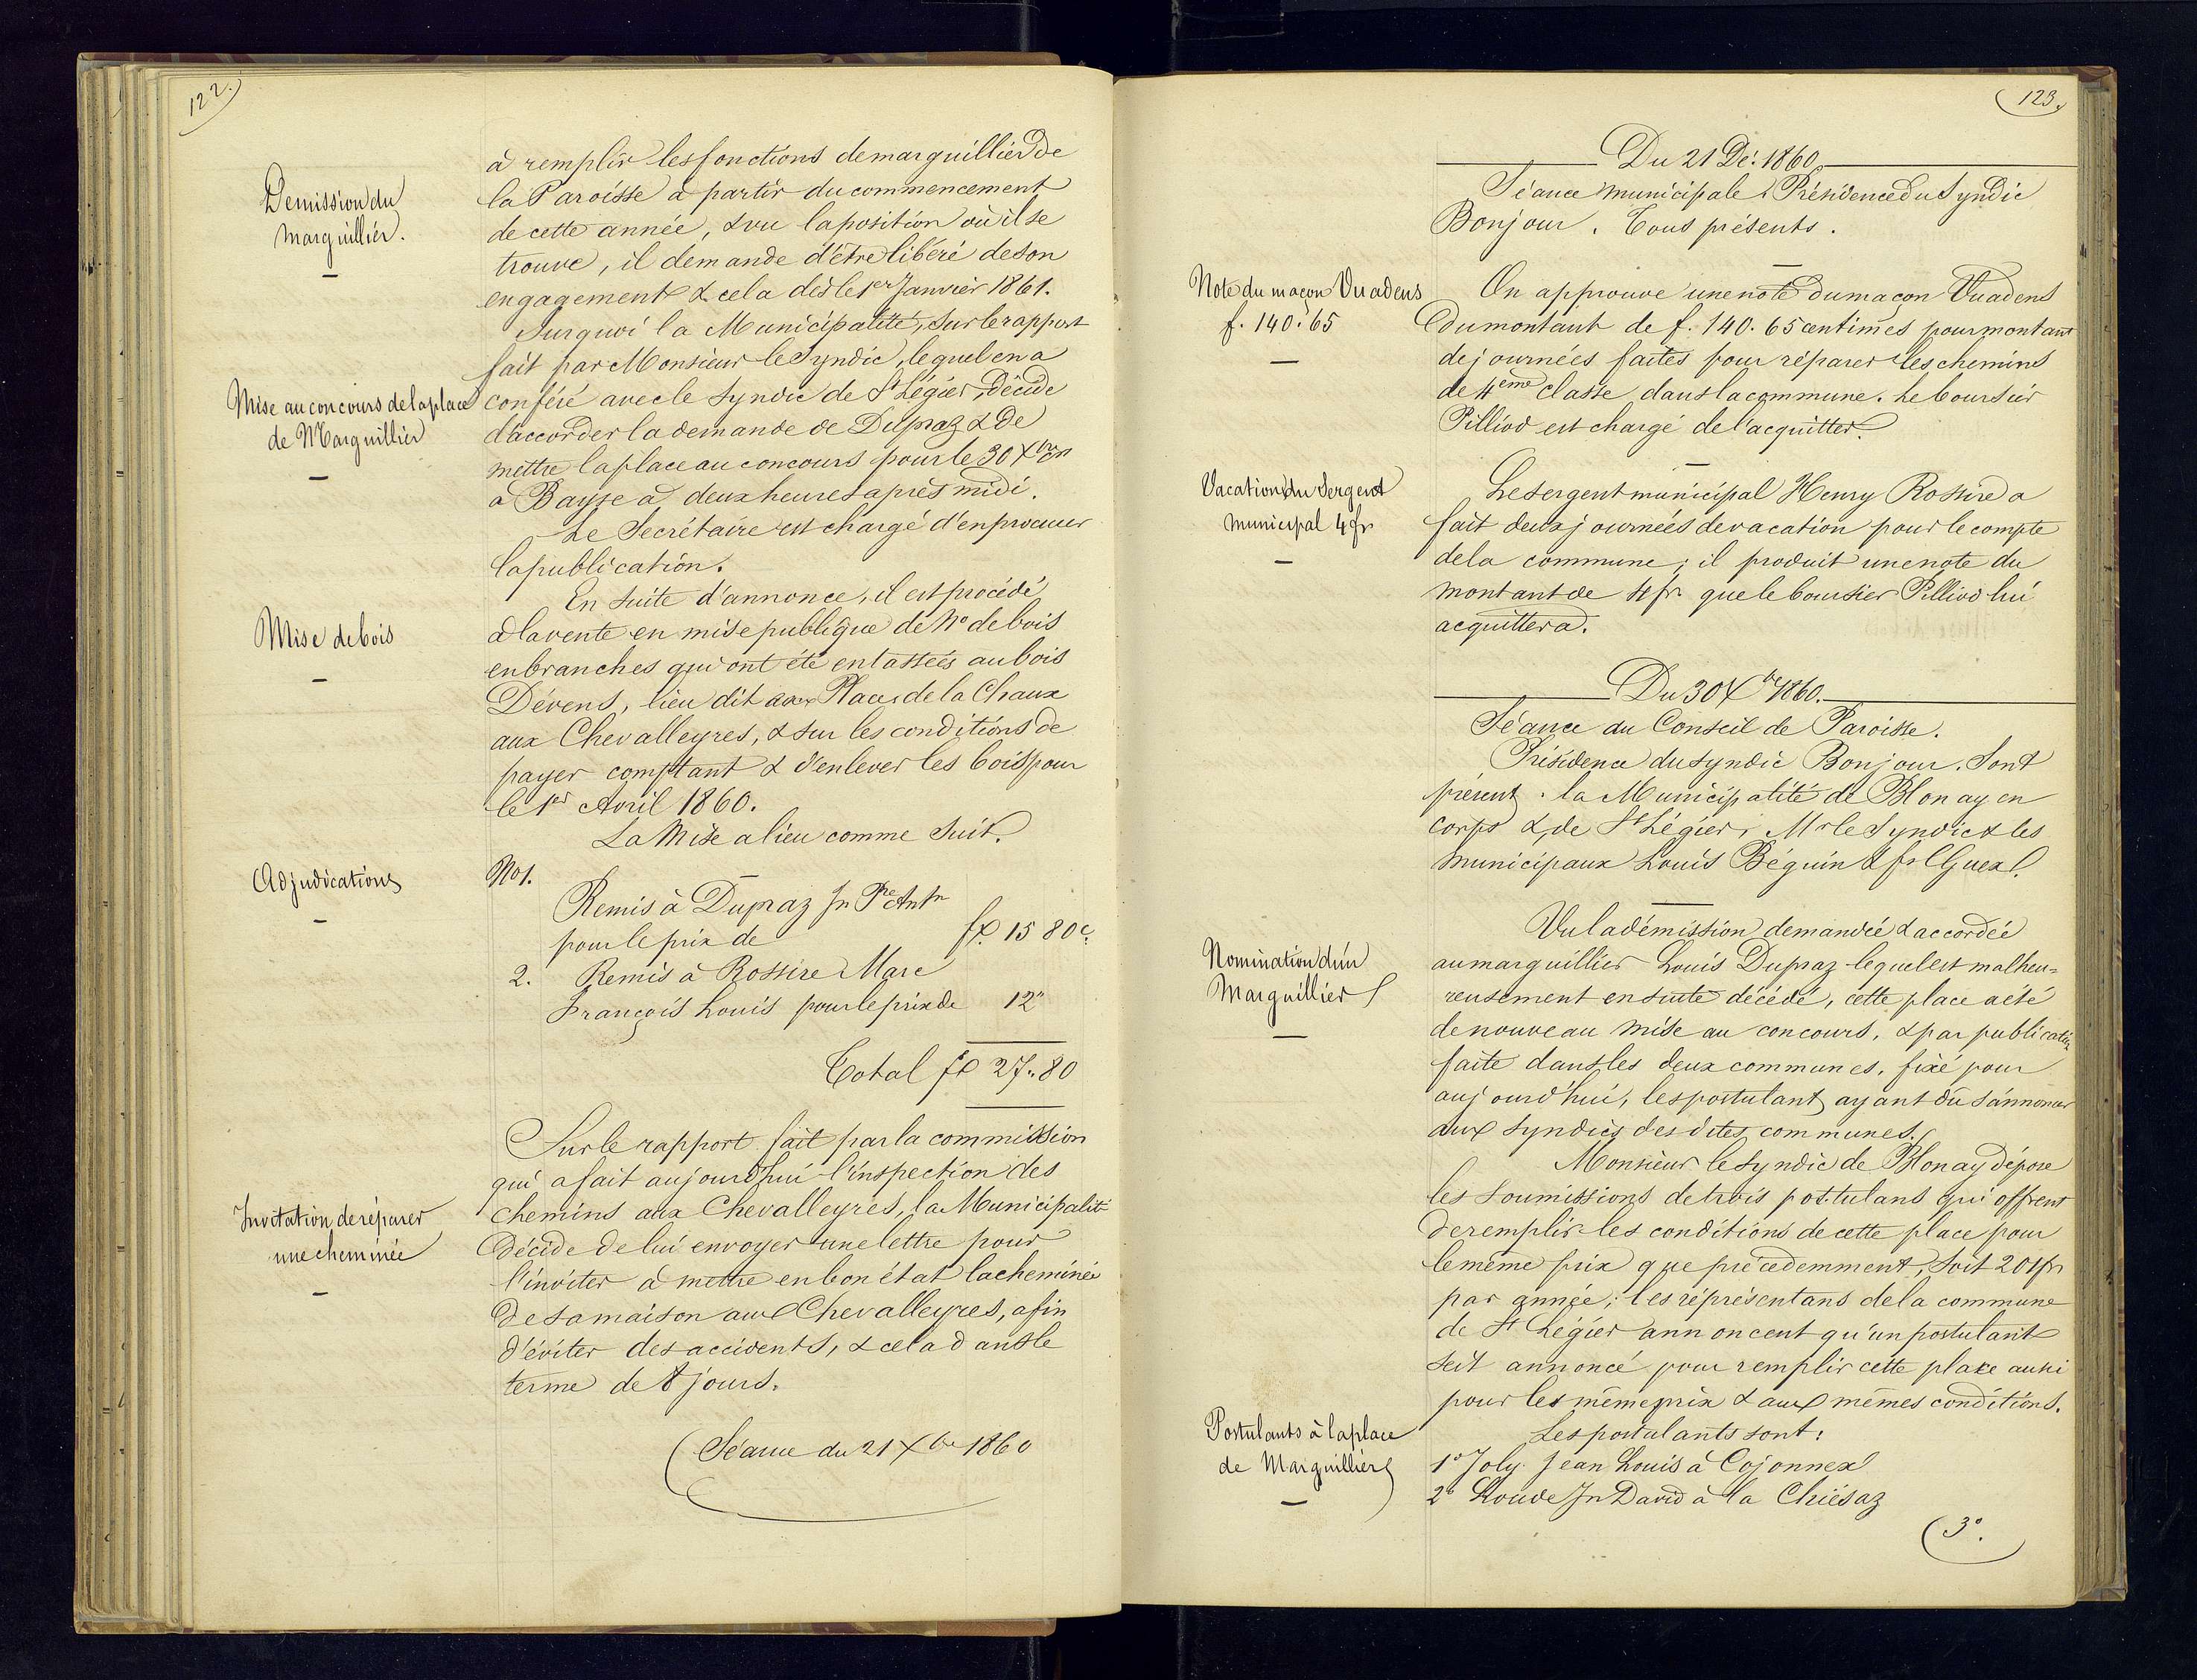 122.
Demission du
marguillier.
à remplir les fonctions de marguillier de
la Paroisse à partir du commencement
de cette année, & vu la position où il se
trouve, il demande d'être libéré de son
engagement & cela dès le 1er Janvier 1861.
Surquoi la Municipalité, sur le rapport
fait par Monsieur le Syndic, lequel en a
Mise au concours de la place
de Marguillier
conféré avec le Syndic de St Légier, décide
d'accorder la demande de Dupraz & de
mettre la place au concours pour le 30 Xbre
à Bayse à deux heures après midi.
Le Secrétaire est chargé d'en procurer
la publication.
Mise de bois
En suite d'annonce, il est procédé
à la vente en mise publique de No de bois
en branches qui ont été entassées au bois
Dévens, lieu dit aux Places de la Chaux
aux Chevalleyres, & sur les conditions de
payer comptant & d'enlever les bois pour
le 1er Avril 1860.
La Mise a lieu comme suit.
Adjudications
No 1.
Remis à Dupraz Jn Pre Antn
pour le prix de fr. 15 80 c.
2. Remis à Rossire Marc
François Louis pour le prix de 12"
Total fr 27.80
Sur le rapport fait par la commission
qui a fait aujourd'hui l'inspection des
Invitation de réparer
une cheminée
chemins aux Chevalleyres, la Municipalité
décide de lui envoyer une lettre pour
l'inviter à mettre en bon état la cheminée
de sa maison aux Chevalleyres, afin
d'éviter des accidents, & cela dans le
terme de 8 jours.
(Séance du 21 Xbre 1860
123.
Du 21 Dé: 1860.
Séance municipale. Présidence du Syndic
Bonjour. Tous présents.
Note du maçon Vuadens
f. 140.65
On approuve une note du maçon Vuadens
du montant de f. 140. 65 centimes pour montant
de journées faites pour réparer les chemins
de 4ème classe dans la commune. Le boursier
Pilliod est chargé de l'acquitter.
Vacation du Sergent
municipal 4 fr
Le sergent municipal Henry Rossire a
fait deux journées de vacation pour le compte
de la commune; il produit une note du
montant de 4 fr. que le boursier Pilliod lui
acquittera.
Du 30 Xbre 1860.
Séance du Conseil de Paroisse.
Présidence du syndic Bonjour. Sont
présent. la Municipalité de Blonay en
corps &, de St Légier, Mr le Syndic & les
municipaux Louis Béguin & fs l Guex.
Nomination d'un
Marguillier
Vu la démission demandée & accordée
au marguillier Louis Dupraz lequel est malheu=
reusement ensuite décédé, cette place a été
de nouveau mise au concours, & par publication
faite dans les deux communes, fixé pour
aujourd'hui, les postulants ayant dû s'annoncer
aux syndics des dites communes.
Monsieur le Syndic de Blonay dépose
les soumissions de trois postulans qui offrent
de remplir les conditions de cette place pour
le même prix que précédemment, soit 201 fr
par année; les réprésentans de la commune
de St Légier annoncent qu'un postulant
seit annoncé pour remplir cette place aussi
pour les même prix & aux mêmes conditions.
Postulants à la place
de Marguilliers
Les postulants sont:
1° Joly Jean Louis à Cojonnex
2° Loude Jn David à la Chiésaz
(3°.